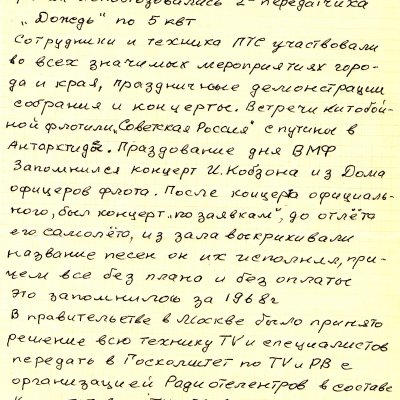 использовались 2 передатчика
„Дождь" по 5 квт
Сотрудники и техника ПТС участвовали
во всех значимых мероприятиях горо-
да и края, праздничные демонстрации
собрания и концерты. Встречи китобой-
ной флотилии „Советская Россия" с путины в
Антарктиде. Празднование дня ВМФ
Запомнился концерт И. Кобзона из Дома
офицеров флота. После концерта официаль-
ного, был концерт „по заявкам", до отлёта
его самолёта, из зала выкрикивали
название песен он их исполнял, при-
чем все без плана и без оплаты
Это запомнилось за 1968г
В правительстве в Москве было принято
решение всю технику TV и специалистов
передать в Госкомитет по TV и РВ с
организацией Радиотелецентров в составе